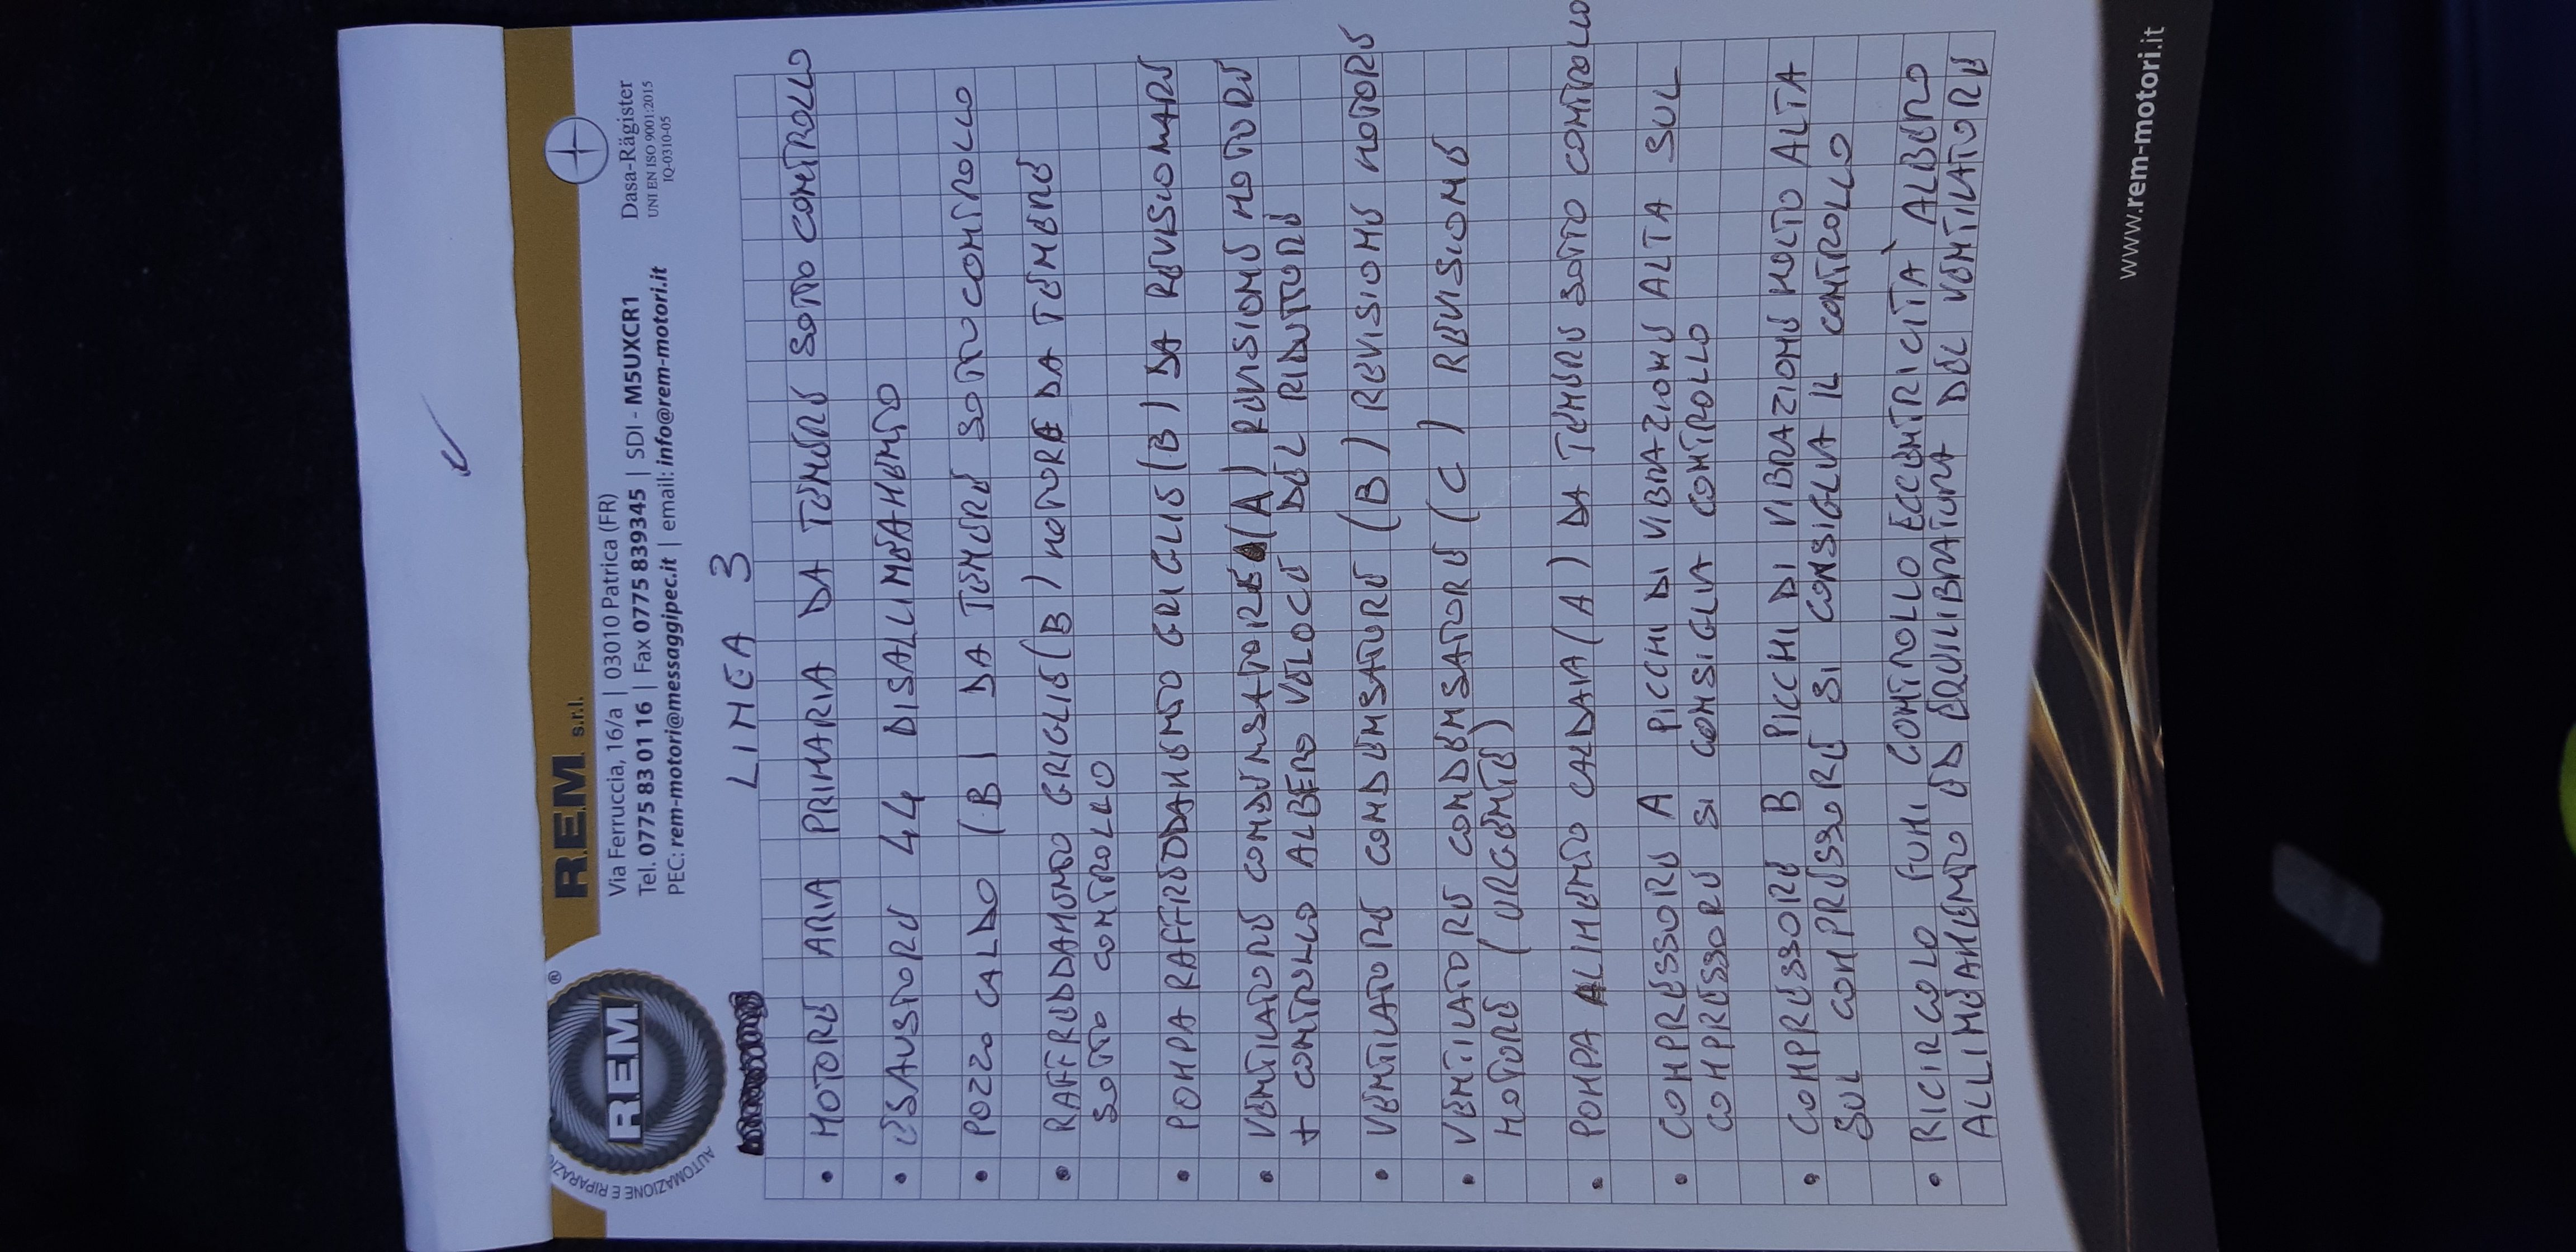 REM
®
AUTOMAZIONE E RIPARAZIO
R.E.M. s.r.l.
Via Ferruccia, 16/a | 03010 Patrica (FR)
Tel. 0775 83 01 16 | Fax 0775 839345 | SDI - M5UXCR1
PEC: rem-motori@messaggipec.it | email: info@rem-motori.it
Dasa-Rägister
UNI EN ISO 9001:2015
IQ-0310-05
LINEA 3
• MOTORE ARIA PRIMARIA DA TENERE SOTTO CONTROLLO
• ESAUSTORE 44 DISALLINEAMENTO
• POZZO CALDO (B) DA TENERE SOTTO CONTROLLO
• RAFFREDDAMENTO GRIGLIE (B) MOTORE DA TENERE
SOTTO CONTROLLO
• POMPA RAFFREDDAMENTO GRIGLIE (B) DA REVISIONARE
• VENTILATORE CONDENSATORE (A) REVISIONE MOTORE
+ CONTROLLO ALBERO VELOCE DEL RIDUTTORE
• VENTILATORE CONDENSATORE (B) REVISIONE MOTORE
• VENTILATORE CONDENSATORE (C) REVISIONE
MOTORE (URGENTE)
• POMPA ALIMENTO CALDAIA (A) DA TENERE SOTTO CONTROLLO
• COMPRESSORE A PICCHI DI VIBRAZIONE ALTA SUL
COMPRESSORE SI CONSIGLIA CONTROLLO
• COMPRESSORE B PICCHI DI VIBRAZIONE MOLTO ALTA
SUL COMPRESSORE SI CONSIGLIA IL CONTROLLO
• RICIRCOLO FUMI CONTROLLO ECCENTRICITÀ ALBERO
ALLINEAMENTO ED EQUILIBRATURA DEL VENTILATORE
www.rem-motori.it